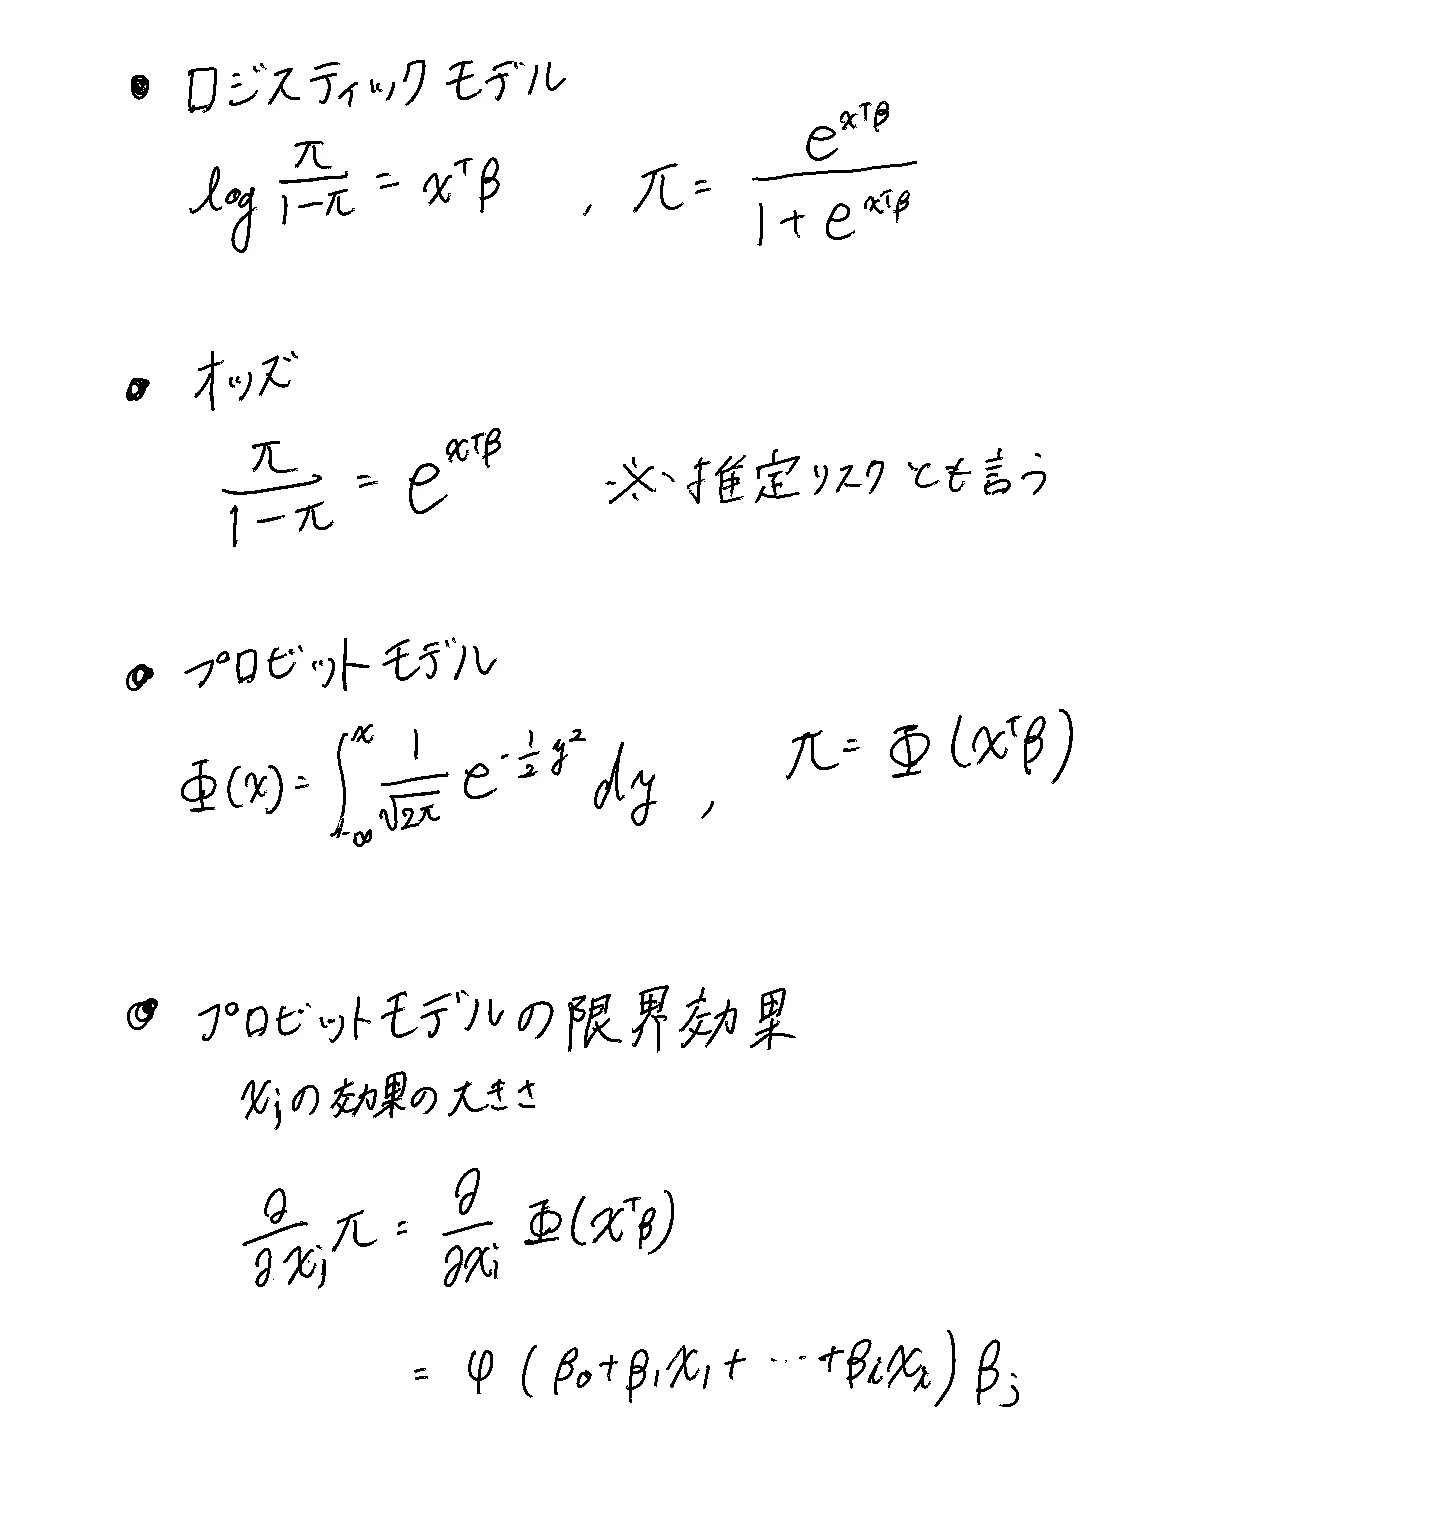 • ロジスティックモデル
log π/(1-π) = xᵀβ , π = e^{xᵀβ}/(1+e^{xᵀβ})
• オッズ
π/(1-π) = e^{xᵀβ} ※推定リスクとも言う
• プロビットモデル
Φ(x) = ∫_{-∞}^{x} 1/√(2π) e^{-1/2 y²} dy , π = Φ(xᵀβ)
• プロビットモデルの限界効果
xⱼの効果の大きさ
∂/∂xⱼ π = ∂/∂xⱼ Φ(xᵀβ)
= φ(β₀+β₁x₁+…+βᵢxᵢ)βⱼ